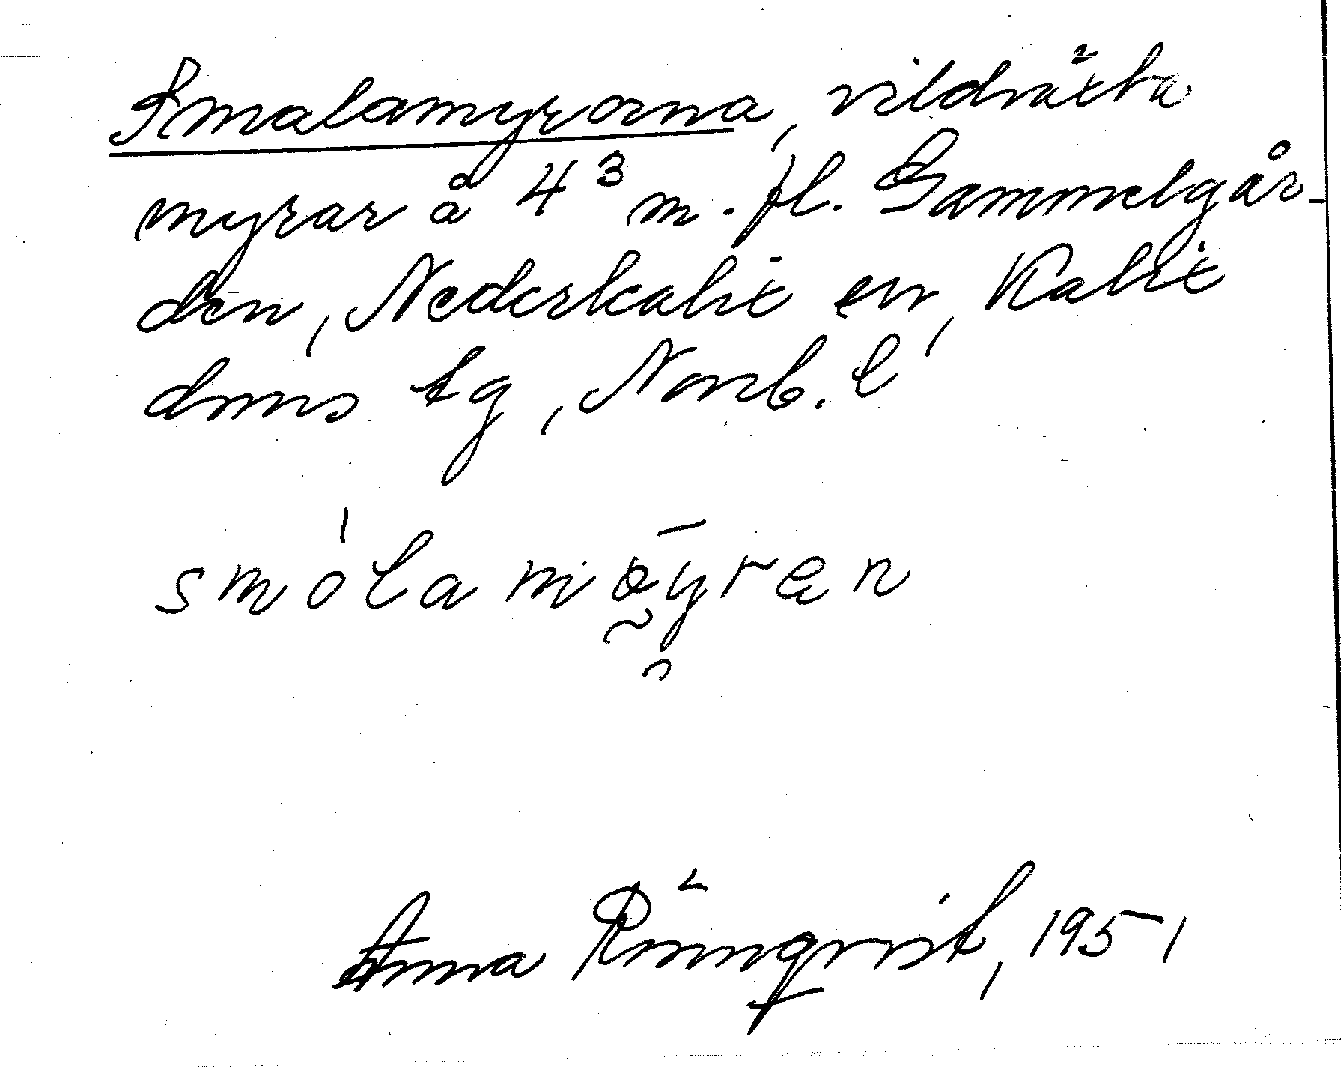 Smalamyrorna, vildväxta
myrar å 4³ m. fl. Gammelgår-
den, Nederkalix sn, Kalix
dms tg, Norrb. l
smólamø̄yrąn
Anna Rönnqvist, 1951